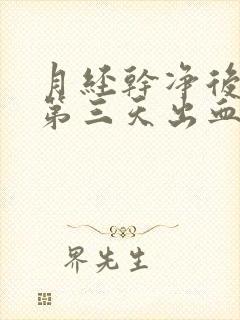 月経幹净後
第三天出血
界先生